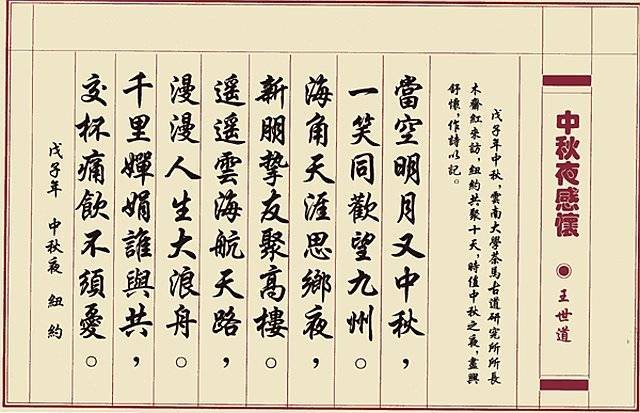 中秋夜感懷
●王世道
戊子年中秋，雲南大學茶馬古道研究所所長
木霽紅來訪，紐約共聚十天，時值中秋之夜，盡興
舒懷，作詩以記。
當空明月又中秋，
一笑同歡望九州。
海角天涯思鄉夜，
新朋摯友聚高樓。
遥遥雲海航天路，
漫漫人生大浪舟。
千里嬋娟誰與共，
交杯痛飲不須憂。
戊子年 中秋夜 紐約